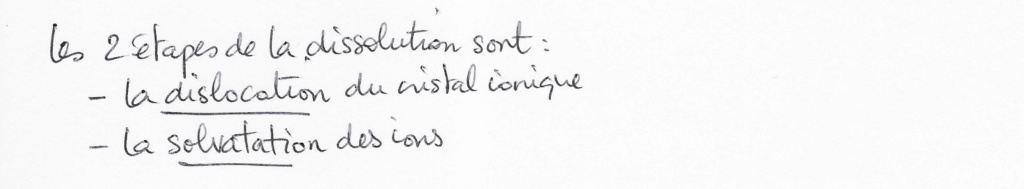 les 2 étapes de la dissolution sont :
- la dislocation du cristal ionique
- la solvatation des ions